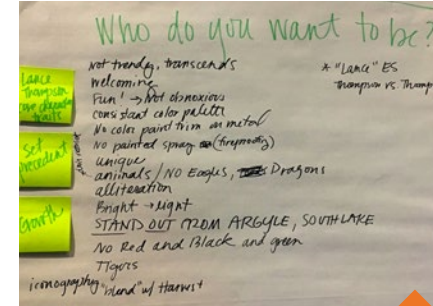 Who do you want to be?
Lance
Thompson
core character
traits
Set
precedent
Growth
not trendy, transcends
welcoming
Fun! → Not obnoxious
consistant color palett
No color paint trim on metal
No painted spray (fireproofing)
unique
animals / NO Eagles, Dragons
alliteration
Bright → light
STAND OUT FROM ARGYLE, SOUTHLAKE
NO Red and Black and green
Tigers
iconography "blend" w/ Harvest
* "Lance" ES
Thompson vs. Thomp